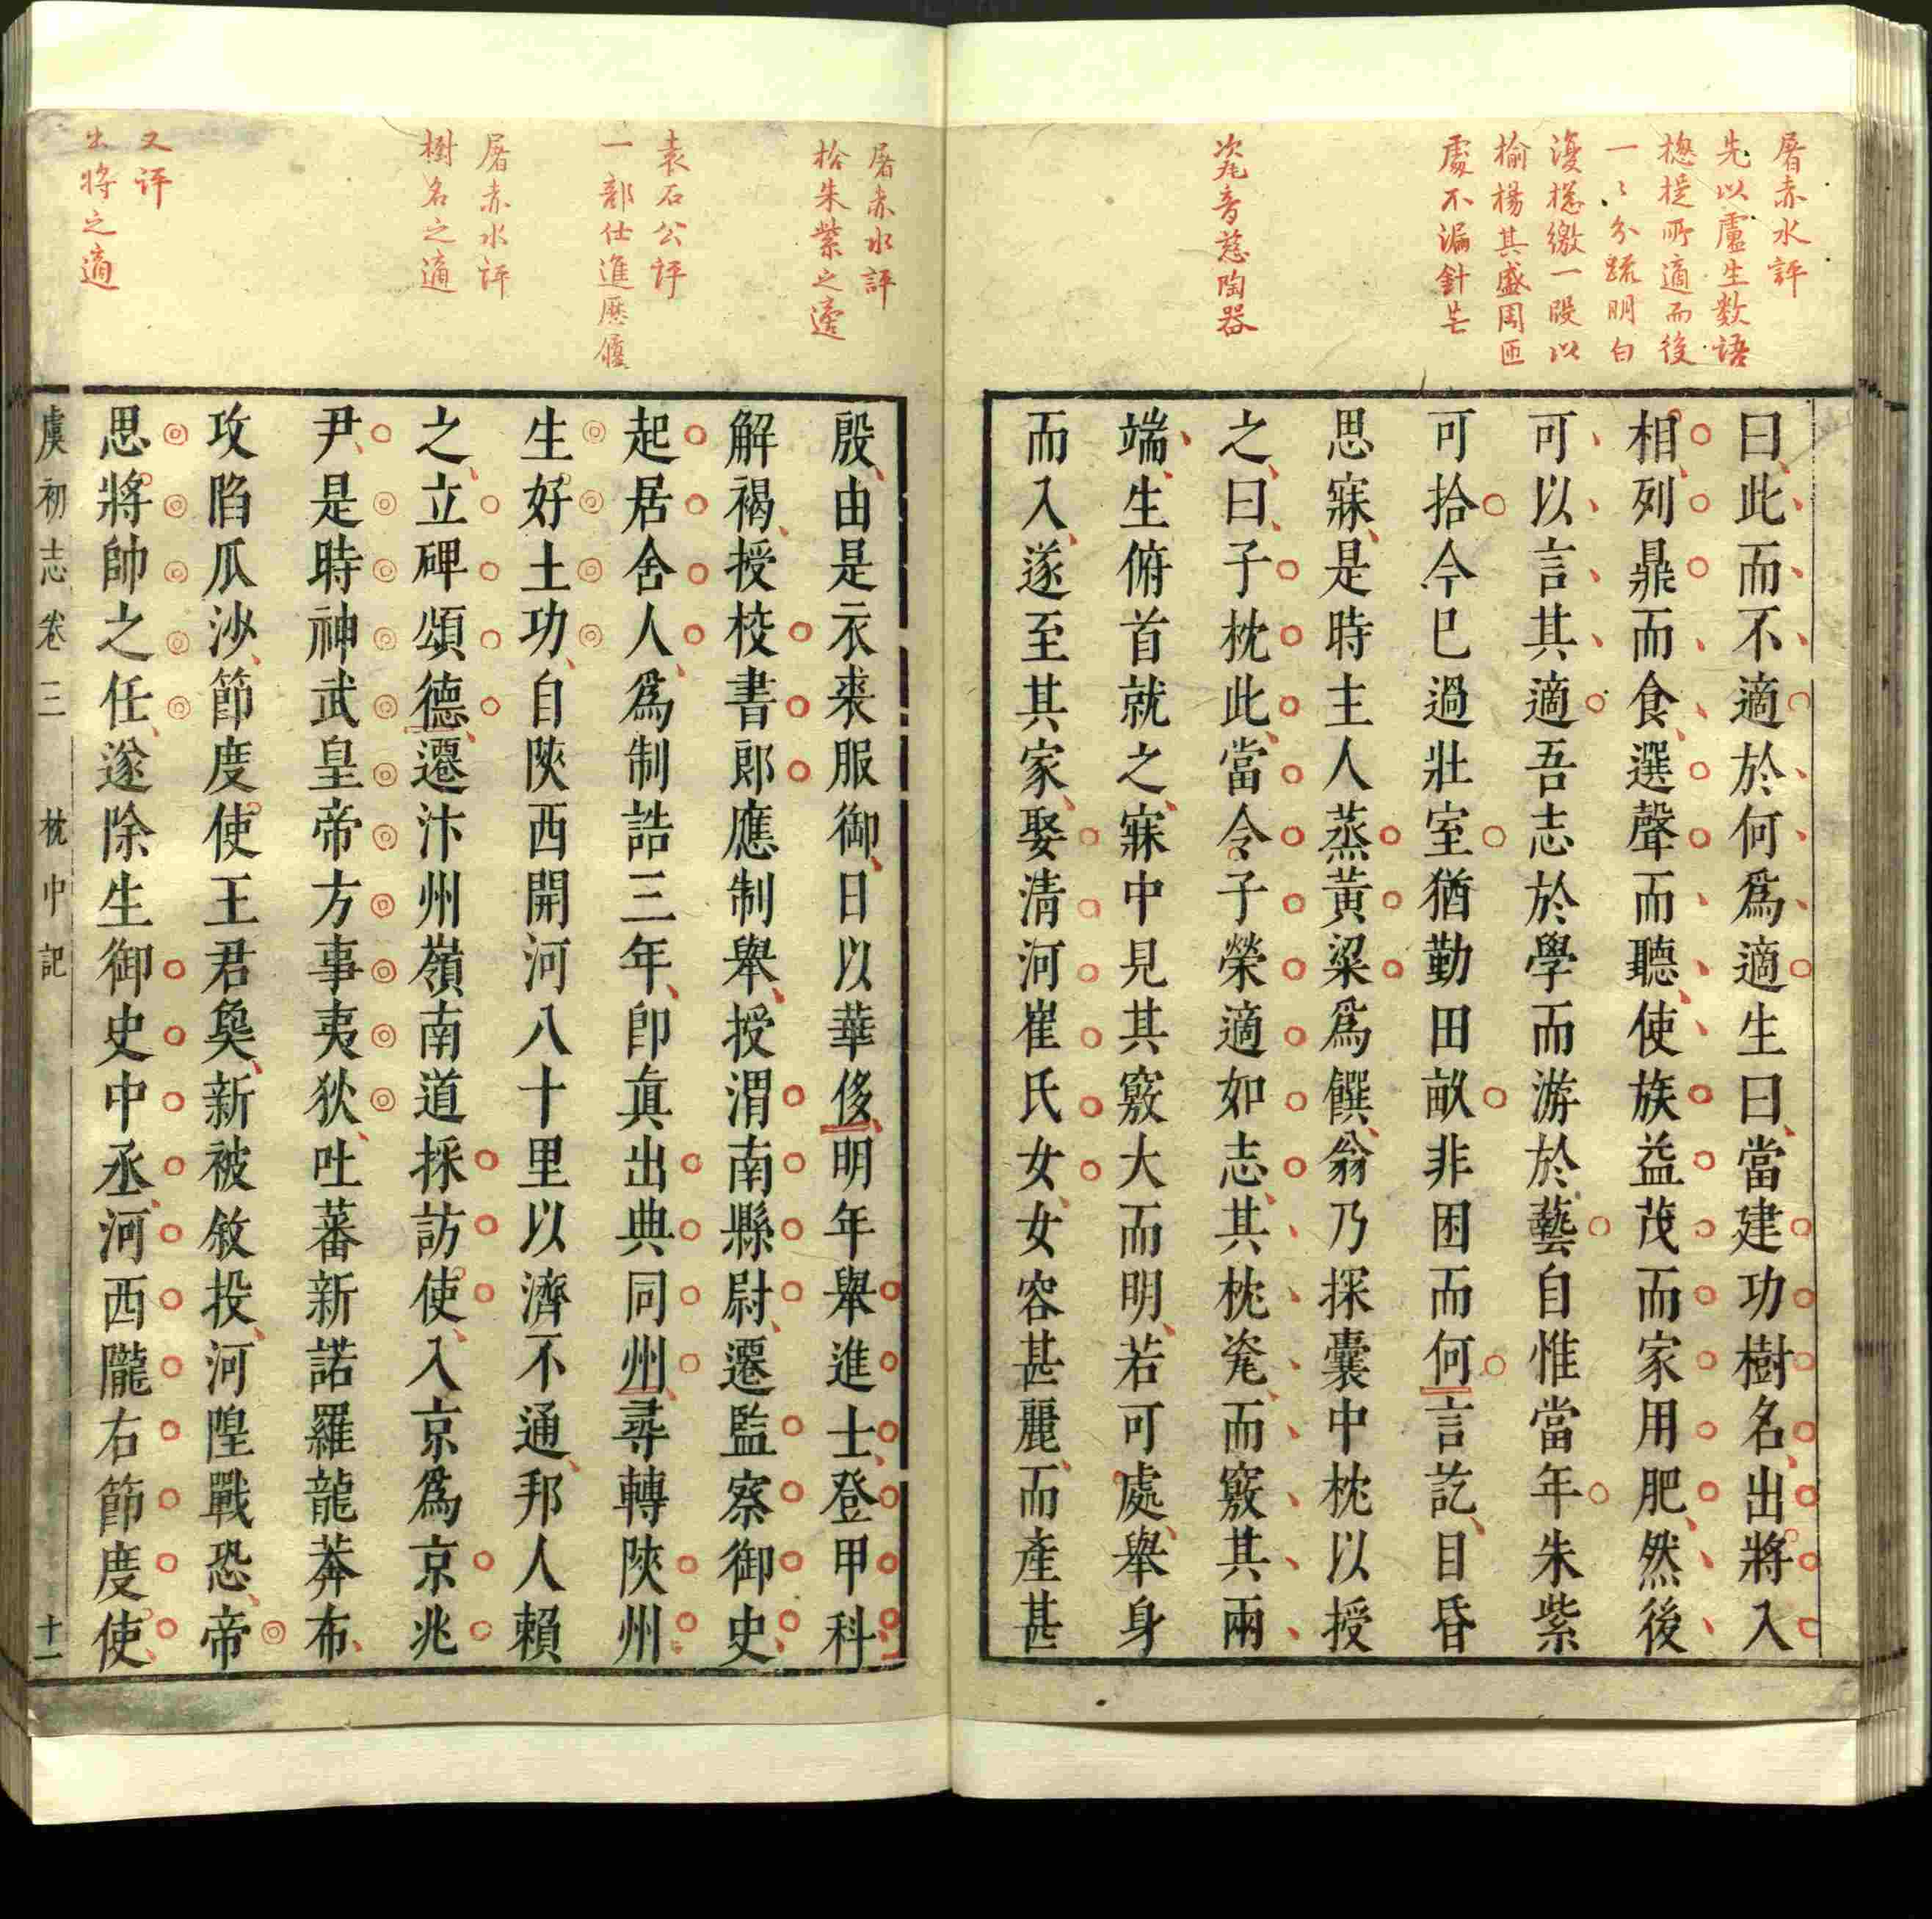 屠赤水評
先以盧生數語
揔提所適而後
一〻分疏明白
復揔繳一段以
揄揚其盛周匝
處不漏針芒
瓷音慈陶器
曰此而不適於何爲適生曰當建功樹名出將入
相列鼎而食選聲而聽使族益茂而家用肥然後
可以言其適吾志於學而游於藝自惟當年朱紫
可拾今已過壯室猶勤田畝非困而何言訖目昏
思寐是時主人蒸黃粱爲饌翁乃探囊中枕以授
之曰子枕此當令子榮適如志其枕瓷而竅其兩
端生俯首就之寐中見其竅大而明若可處舉身
而入遂至其家娶清河崔氏女女容甚麗而產甚
屠赤水評
拾朱紫之適
袁石公評
一部仕進歷履
屠赤水評
樹名之適
又評
出將之適
殷由是衣裘服御日以華侈明年舉進士登甲科
解褐授校書郎應制舉授渭南縣尉遷監察御史
起居舍人爲制誥三年卽眞出典同州尋轉陝州
生好土功自陝西開河八十里以濟不通邦人賴
之立碑頌德遷汴州嶺南道採訪使入京爲京兆
尹是時神武皇帝方事夷狄吐蕃新諾羅龍莽布
攻陷瓜沙節度使王君㚟新被敘投河隍戰恐帝
思將帥之任遂除生御史中丞河西隴右節度使
虞初志 卷三 枕中記 十一